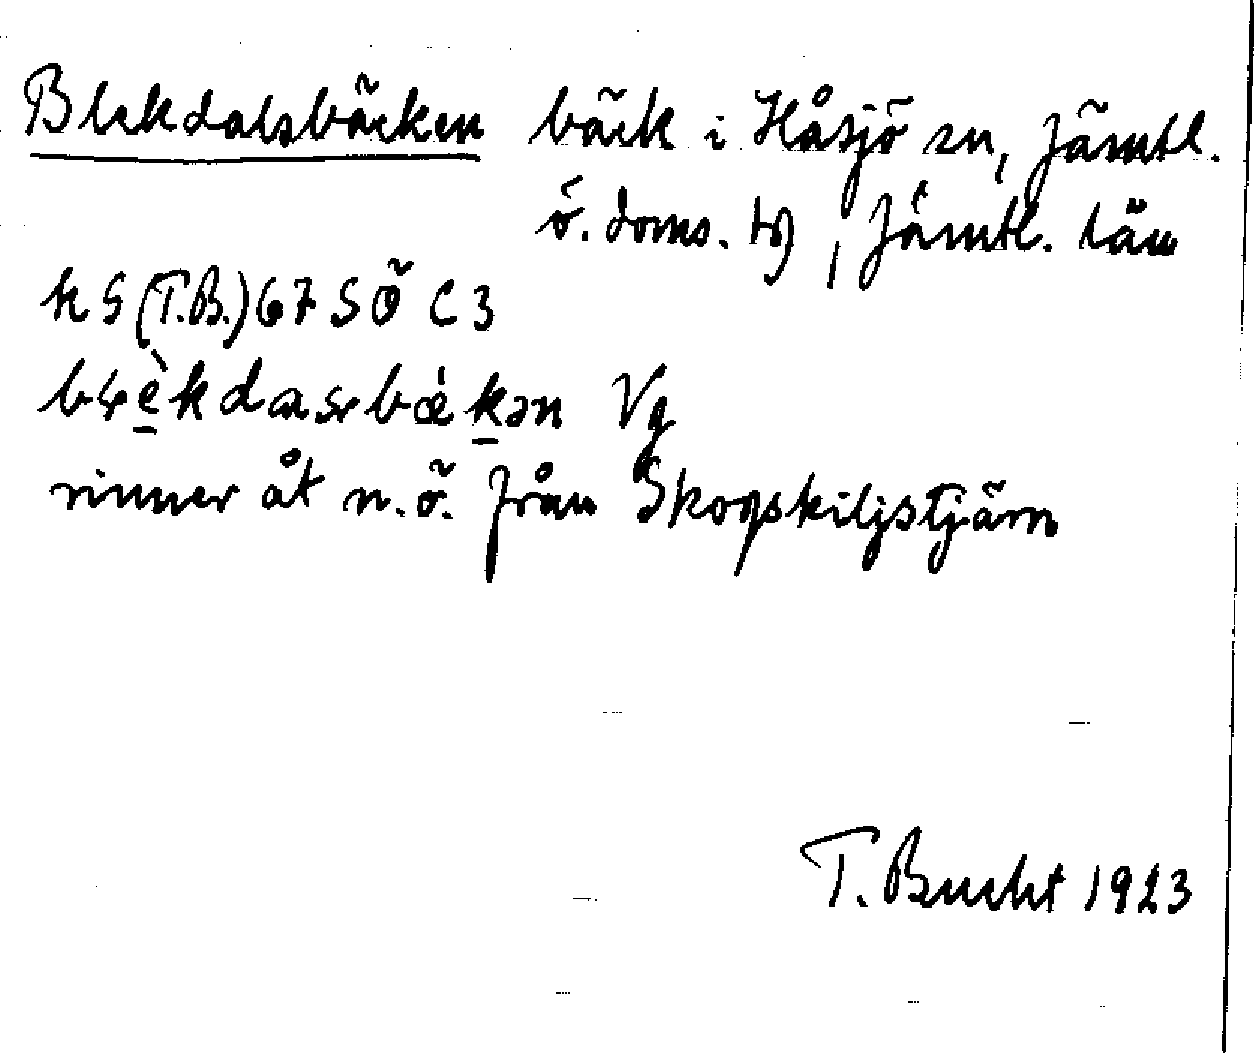 Blekdalsbäcken bäck i Håsjö sn, Jämtl.
ö. doms. , Jämtl. län
k S (T.B.) 67 SÖ C 3
rinner åt n.ö. från Skogskiljstjärn
T. Bucht 1923